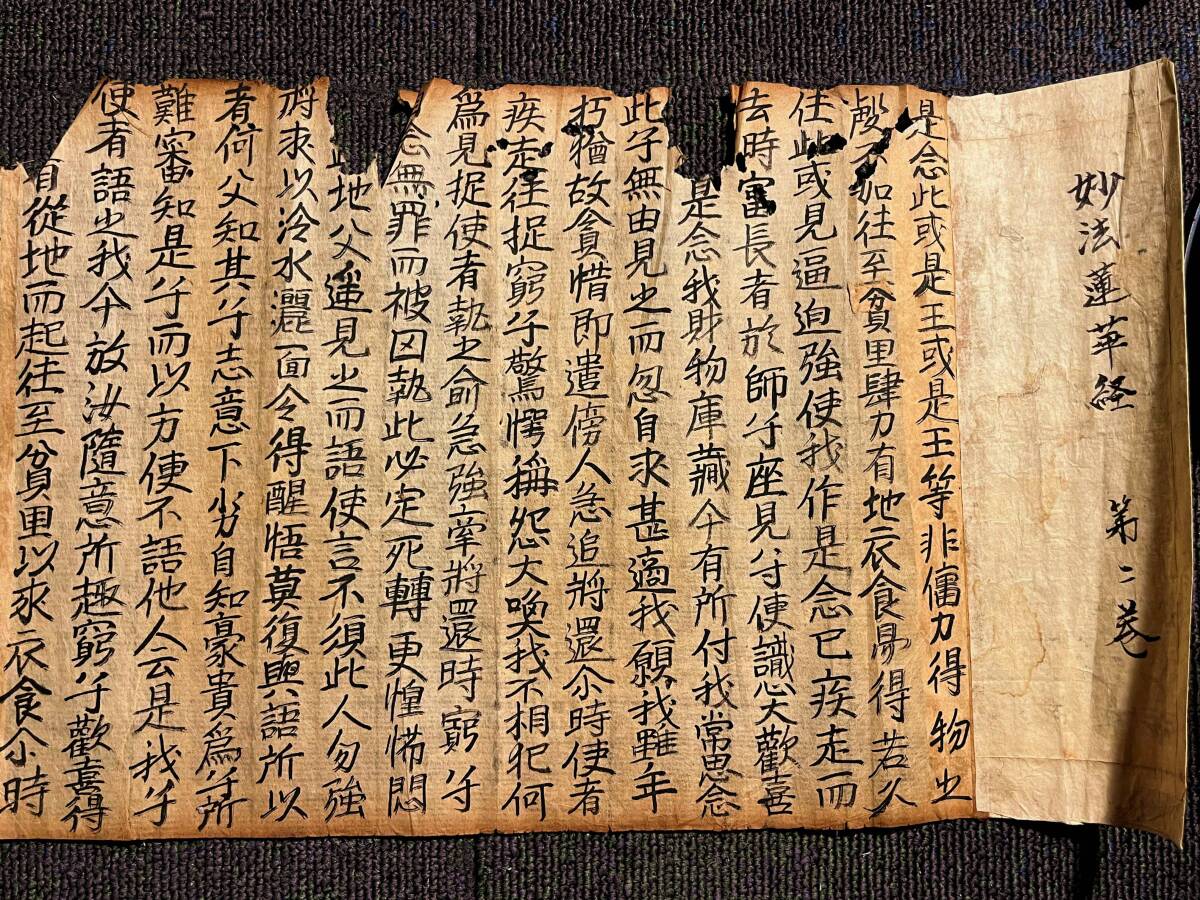 妙法蓮華経 第二巻
是念此或是王或是王等非傭力得物之
處不如往至貧里肆力有地衣食易得若久
住此或見逼迫強使我作是念已疾走而
去時富長者於師子座見子便識心大歡喜
是念我財物庫藏今有所付我常思念
此子無由見之而忽自来甚適我願我雖年
朽猶故貪惜即遣傍人急追將還尒時使者
疾走往捉窮子驚愕稱怨大喚我不相犯何
為見捉使者執之俞急強牽將還時窮子
念無罪而被囚執此必定死轉更惶怖悶
地父遥見之而語使言不須此人勿強
將来以冷水灑面令得醒悟莫復與語所以
者何父知其子志意下劣自知豪貴為子所
難審知是子而以方便不語他人云是我子
使者語之我今放汝隨意所趣窮子歡喜得
有從地而起往至貧里以求衣食尒時